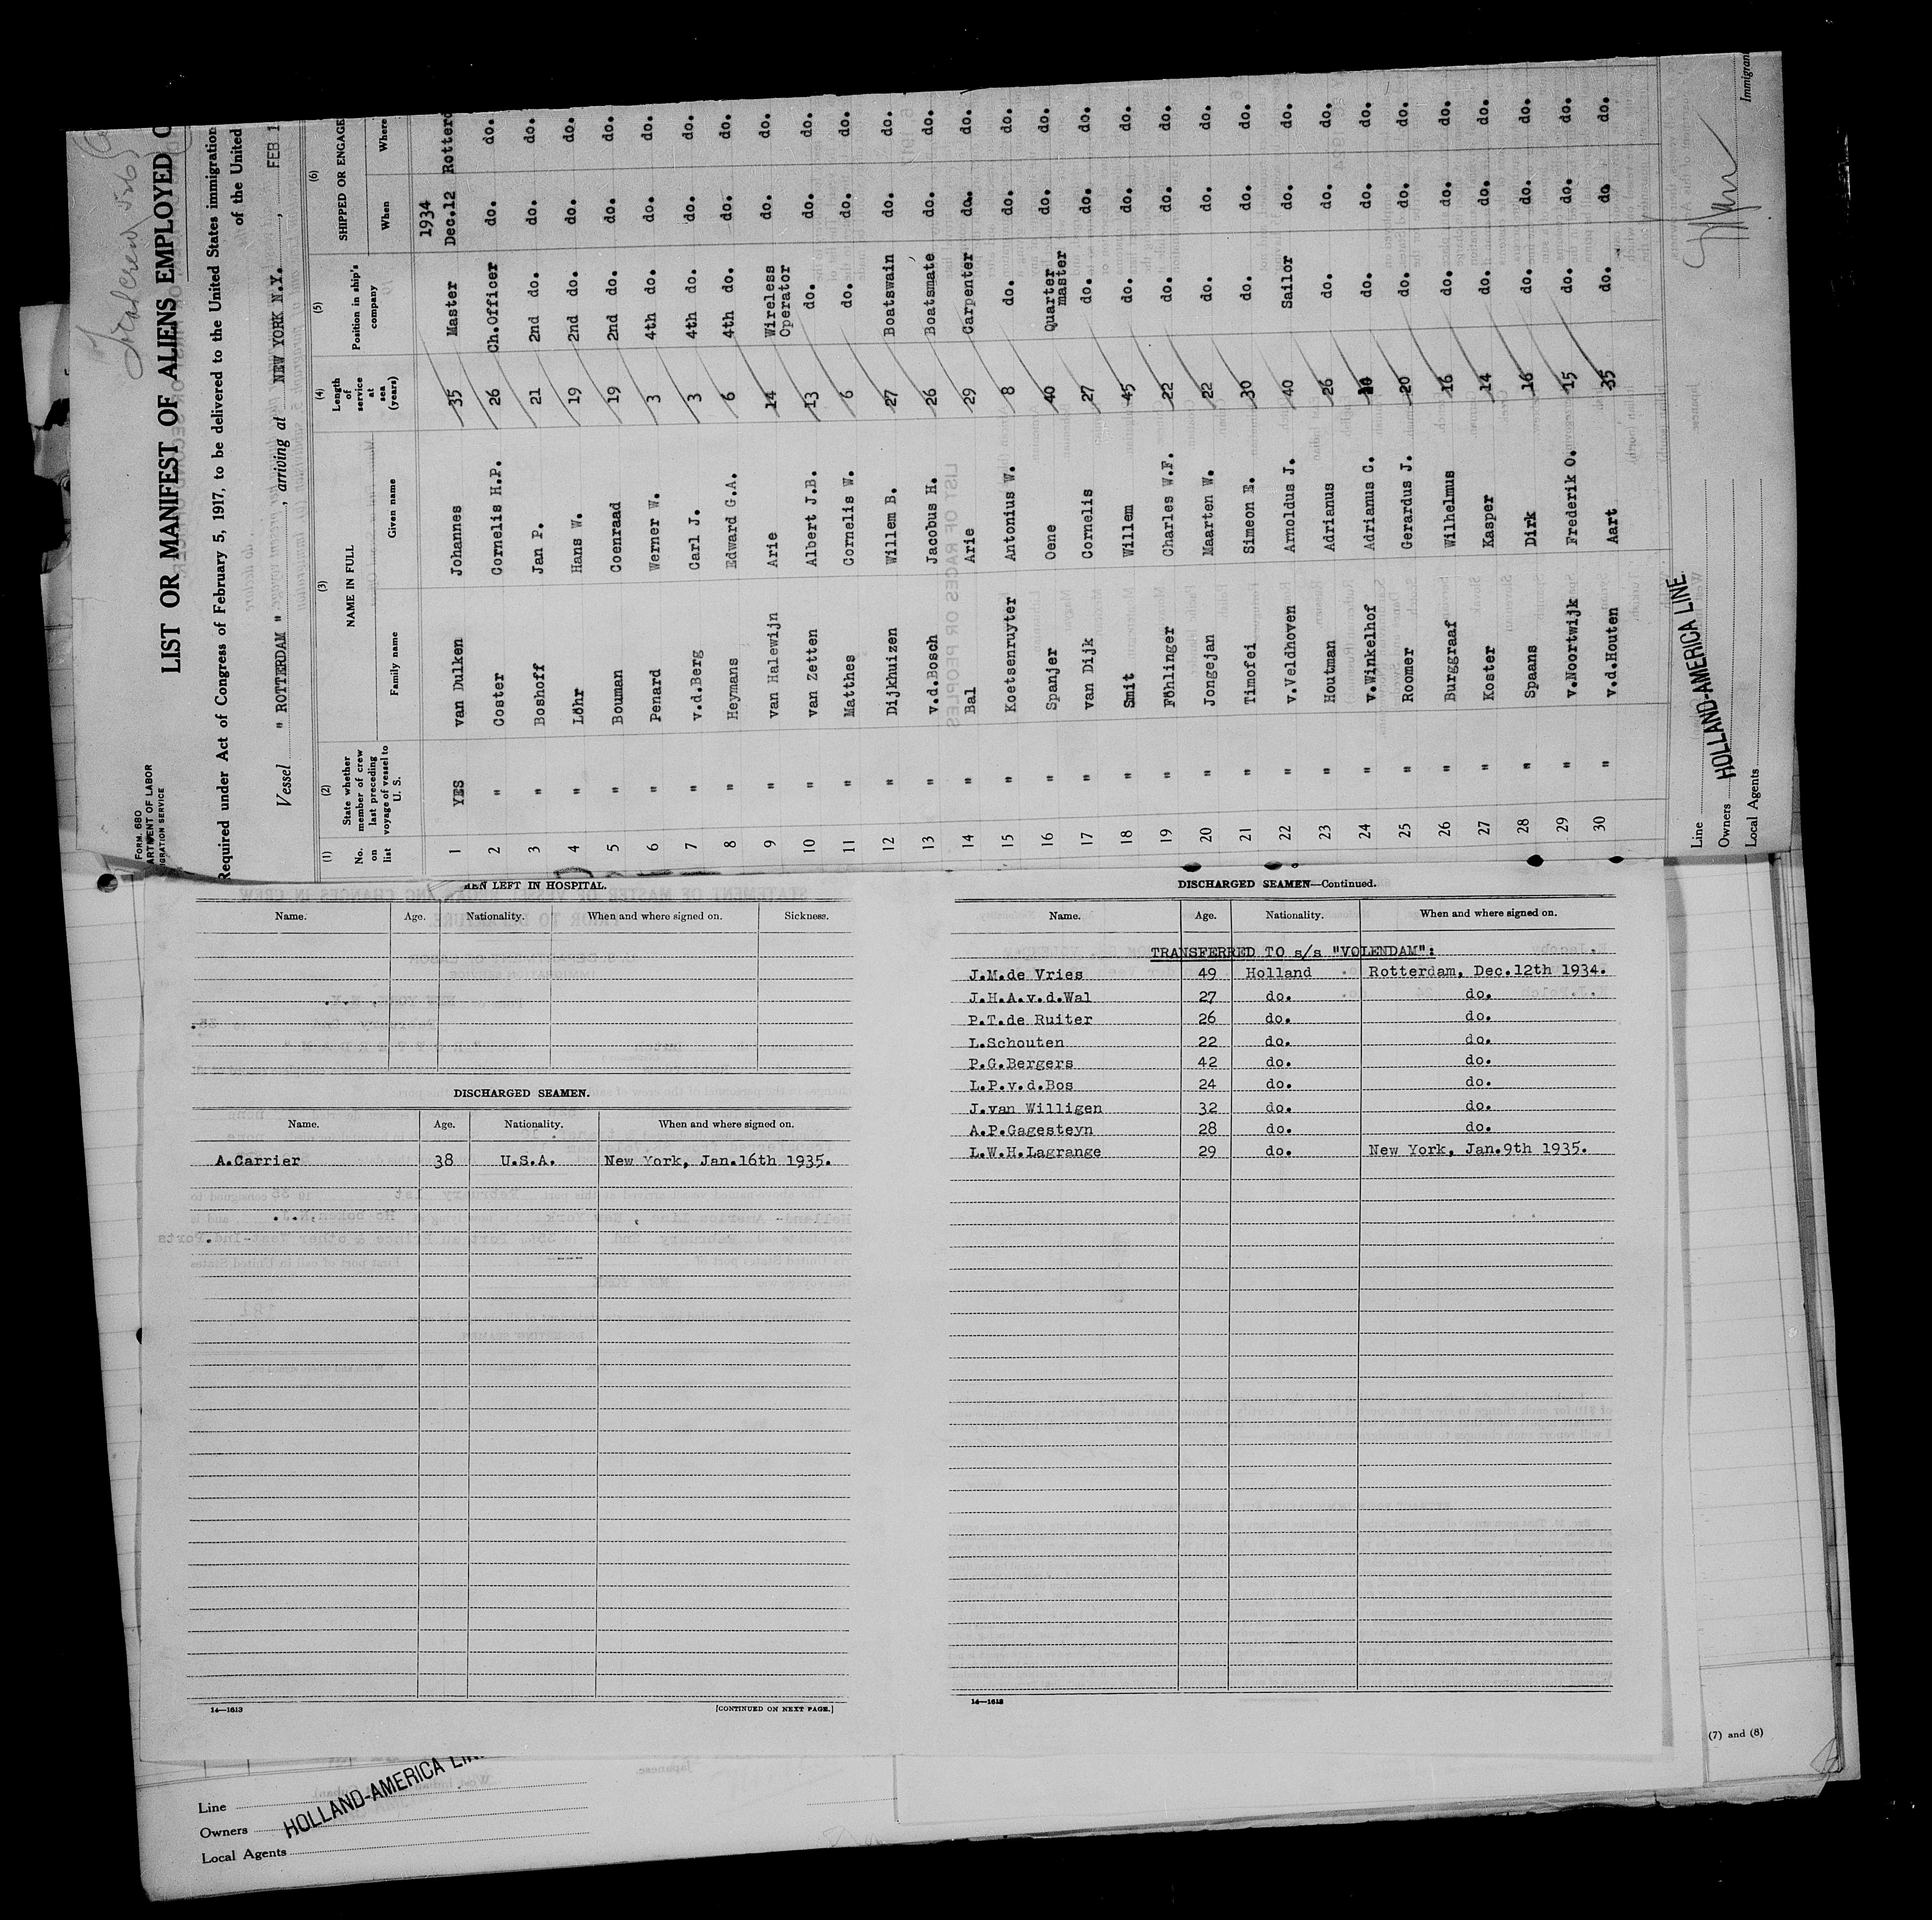 FORM 680
LIST OR MANIFEST OF ALIENS EMPLOYED
Required under Act of Congress of February 5, 1917, to be delivered to the United States immigration
of the United
Vessel " ROTTERDAM " , arriving at NEW YORK N.Y. , FEB. 1
(1) (2) (3) (4) (5) (6)
No. on list State whether member of crew last preceding voyage of vessel to U. S. NAME IN FULL Family name Given name Length of service at sea (years) Position in ship's company SHIPPED OR ENGAGE When Where
1934
1 YES van Dulken Johannes 35 Master Dec.12 Rotterd
2 " Coster Cornelis H.P. 26 Ch.Officer do. do.
3 " Boshoff Jan P. 21 2nd do. do. do.
4 " Löhr Hans W. 19 2nd do. do. do.
5 " Bouman Coenraad 19 2nd do. do. do.
6 " Penard Werner W. 3 4th do. do. do.
7 " v.d.Berg Carl J. 3 4th do. do. do.
8 " Heymans Edward G.A. 6 4th do. do. do.
9 " van Halewijn Arie 14 Wireless Operator do. do.
10 " van Zetten Albert J.B. 13 do. do. do.
11 " Matthes Cornelis W. 6 do. do. do.
12 " Dijkhuizen Willem B. 27 Boatswain do. do.
13 " v.d.Bosch Jacobus H. 26 Boatsmate do. do.
14 " Bal Arie 29 Carpenter do. do.
15 " Koetsenruyter Antonius W. 8 do. do. do.
16 " Spanjer Oene 40 Quarter master do. do.
17 " van Dijk Cornelis 27 do. do. do.
18 " Smit Willem 45 do. do. do.
19 " Föhlinger Charles W.F. 22 do. do. do.
20 " Jongejan Maarten W. 22 do. do. do.
21 " Timofei Simeon E. 30 do. do. do.
22 " v.Veldhoven Arnoldus J. 40 Sailor do. do.
23 " Houtman Adrianus 26 do. do. do.
24 " v.Winkelhof Adrianus C. do. do. do.
25 " Roomer Gerardus J. 20 do. do. do.
26 " Burggraaf Wilhelmus 16 do. do. do.
27 " Koster Kasper 14 do. do. do.
28 " Spaans Dirk 16 do. do. do.
29 " v.Noortwijk Frederik O. 15 do. do. do.
30 " v.d.Houten Aart 35 do. do. do.
Line
Owners HOLLAND-AMERICA LINE
Local Agents
Immigran
LEFT IN HOSPITAL.
Name. Age. Nationality. When and where signed on. Sickness.
DISCHARGED SEAMEN.
Name. Age. Nationality. When and where signed on.
A.Carrier 38 U.S.A. New York, Jan.16th 1935.
14—1613 [CONTINUED ON NEXT PAGE.]
DISCHARGED SEAMEN—Continued.
Name. Age. Nationality. When and where signed on.
TRANSFERRED TO s/s "VOLENDAM":
J.M.de Vries 49 Holland Rotterdam, Dec.12th 1934.
J.H.A.v.d.Wal 27 do. do.
P.T.de Ruiter 26 do. do.
L.Schouten 22 do. do.
P.G.Bergers 42 do. do.
L.P.v.d.Bos 24 do. do.
J.van Willigen 32 do. do.
A.P.Gagesteyn 28 do. do.
L.W.H.Lagrange 29 do. New York, Jan.9th 1935.
14—1613
(7) and (8)
Line
Owners HOLLAND-AMERICA
Local Agents